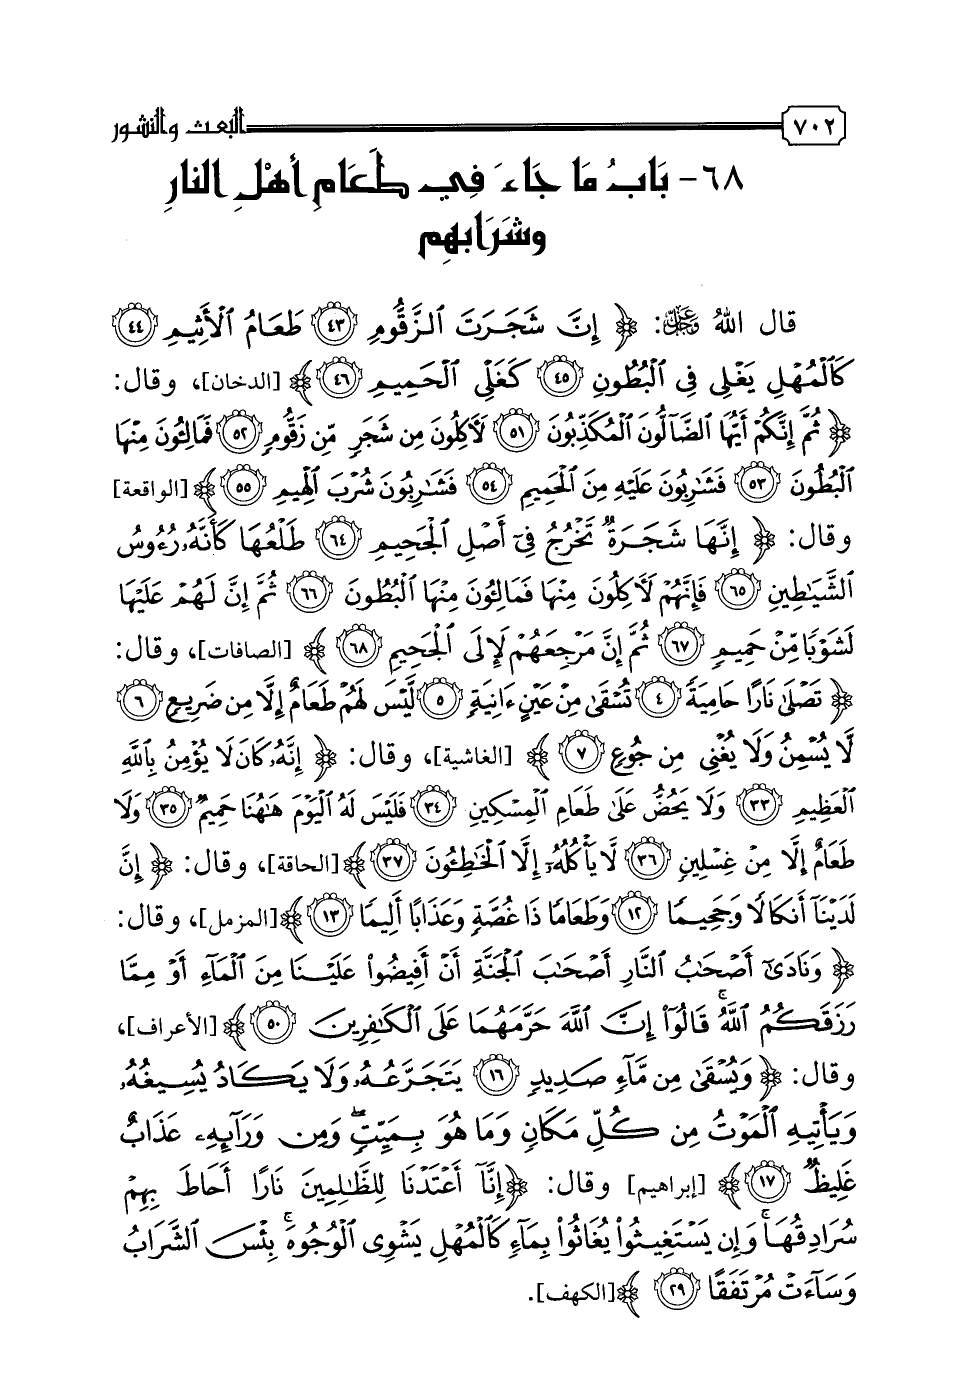 ٧٠٢ البعث والنشور
٦٨- بَابُ مَا جَاءَ فِي طَعَامِ أهْلِ النارِ
وشَرَابهِم
قال اللهُ عَزَّوَجَلَّ: ﴿ إِنَّ شَجَرَتَ الزَّقُّومِ ٤٣ طَعَامُ الْأَثِيمِ ٤٤
كَالْمُهْلِ يَغْلِي فِي الْبُطُونِ ٤٥ كَغَلْيِ الْحَمِيمِ ٤٦ ﴾ [الدخان]، وقال:
﴿ ثُمَّ إِنَّكُمْ أَيُّهَا الضَّآلُّونَ الْمُكَذِّبُونَ ٥١ لَآكِلُونَ مِن شَجَرٍ مِّن زَقُّومٍ ٥٢ فَمَالِئُونَ مِنْهَا
الْبُطُونَ ٥٣ فَشَٰرِبُونَ عَلَيْهِ مِنَ الْحَمِيمِ ٥٤ فَشَٰرِبُونَ شُرْبَ الْهِيمِ ٥٥ ﴾ [الواقعة]
وقال: ﴿ إِنَّهَا شَجَرَةٌ تَخْرُجُ فِيٓ أَصْلِ الْجَحِيمِ ٦٤ طَلْعُهَا كَأَنَّهُۥ رُءُوسُ
الشَّيَٰطِينِ ٦٥ فَإِنَّهُمْ لَآكِلُونَ مِنْهَا فَمَالِئُونَ مِنْهَا الْبُطُونَ ٦٦ ثُمَّ إِنَّ لَهُمْ عَلَيْهَا
لَشَوْبًا مِّنْ حَمِيمٍ ٦٧ ثُمَّ إِنَّ مَرْجِعَهُمْ لَإِلَى الْجَحِيمِ ٦٨ ﴾ [الصافات]، وقال:
﴿ تَصْلَىٰ نَارًا حَامِيَةً ٤ تُسْقَىٰ مِنْ عَيْنٍ ءَانِيَةٍ ٥ لَّيْسَ لَهُمْ طَعَامٌ إِلَّا مِن ضَرِيعٍ ٦
لَّا يُسْمِنُ وَلَا يُغْنِي مِن جُوعٍ ٧ ﴾ [الغاشية]، وقال: ﴿ إِنَّهُۥ كَانَ لَا يُؤْمِنُ بِاللَّهِ
الْعَظِيمِ ٣٣ وَلَا يَحُضُّ عَلَىٰ طَعَامِ الْمِسْكِينِ ٣٤ فَلَيْسَ لَهُ الْيَوْمَ هَٰهُنَا حَمِيمٌ ٣٥ وَلَا
طَعَامٌ إِلَّا مِنْ غِسْلِينٍ ٣٦ لَّا يَأْكُلُهُۥٓ إِلَّا الْخَٰطِئُونَ ٣٧ ﴾ [الحاقة]، وقال: ﴿ إِنَّ
لَدَيْنَآ أَنكَالًا وَجَحِيمًا ١٢ وَطَعَامًا ذَا غُصَّةٍ وَعَذَابًا أَلِيمًا ١٣ ﴾ [المزمل]، وقال:
﴿ وَنَادَىٰٓ أَصْحَٰبُ النَّارِ أَصْحَٰبَ الْجَنَّةِ أَنْ أَفِيضُوا۟ عَلَيْنَا مِنَ الْمَآءِ أَوْ مِمَّا
رَزَقَكُمُ اللَّهُ ۚ قَالُوٓا۟ إِنَّ اللَّهَ حَرَّمَهُمَا عَلَى الْكَٰفِرِينَ ٥٠ ﴾ [الأعراف]،
وقال: ﴿ وَيُسْقَىٰ مِن مَّآءٍ صَدِيدٍ ١٦ يَتَجَرَّعُهُۥ وَلَا يَكَادُ يُسِيغُهُۥ
وَيَأْتِيهِ الْمَوْتُ مِن كُلِّ مَكَانٍ وَمَا هُوَ بِمَيِّتٍ ۖ وَمِن وَرَآئِهِۦ عَذَابٌ
غَلِيظٌ ١٧ ﴾ [إبراهيم] وقال: ﴿إِنَّآ أَعْتَدْنَا لِلظَّٰلِمِينَ نَارًا أَحَاطَ بِهِمْ
سُرَادِقُهَا ۚ وَإِن يَسْتَغِيثُوا۟ يُغَاثُوا۟ بِمَآءٍ كَالْمُهْلِ يَشْوِي الْوُجُوهَ ۚ بِئْسَ الشَّرَابُ
وَسَآءَتْ مُرْتَفَقًا ٢٩ ﴾ [الكهف].